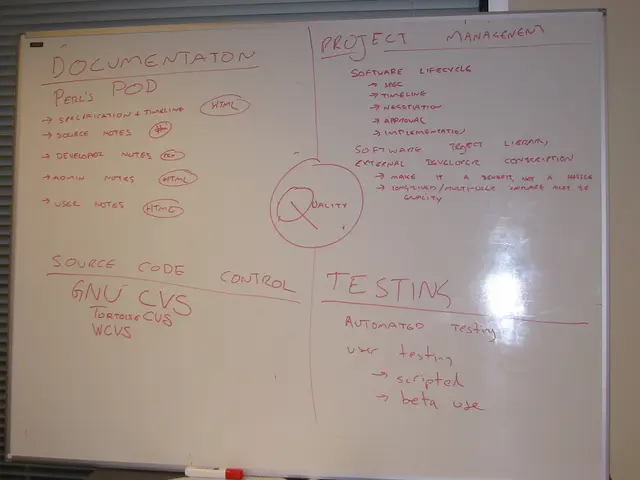 DOCUMENTATON
PERL'S POD
→ SPECIFICATION + TIMELINE HTML
→ SOURCE NOTES #
→ DEVELOPER NOTES
→ ADMIN NOTES HTML
→ USER NOTES HTML
PROJECT MANAGEMENT
SOFTWARE LIFECYCLE
→ SPEC
→ TIMELINE
→ NEGOTIATION
→ APPROVAL
→ IMPLEMENTATION
SOFTWARE PROJECT LIBRARY
EXTERNAL DEVELOPER CONSCRIPTION
→ MAKE IT A BENEFIT, NOT A HASSLE
→ LONG-LIVED/MULTI-USER MUST BE
QUALITY
QUALITY
SOURCE CODE CONTROL
GNU CVS
TORTOISE CVS
WCVS
TESTING
AUTOMATED Testing
user testing
→ scripted
→ beta use